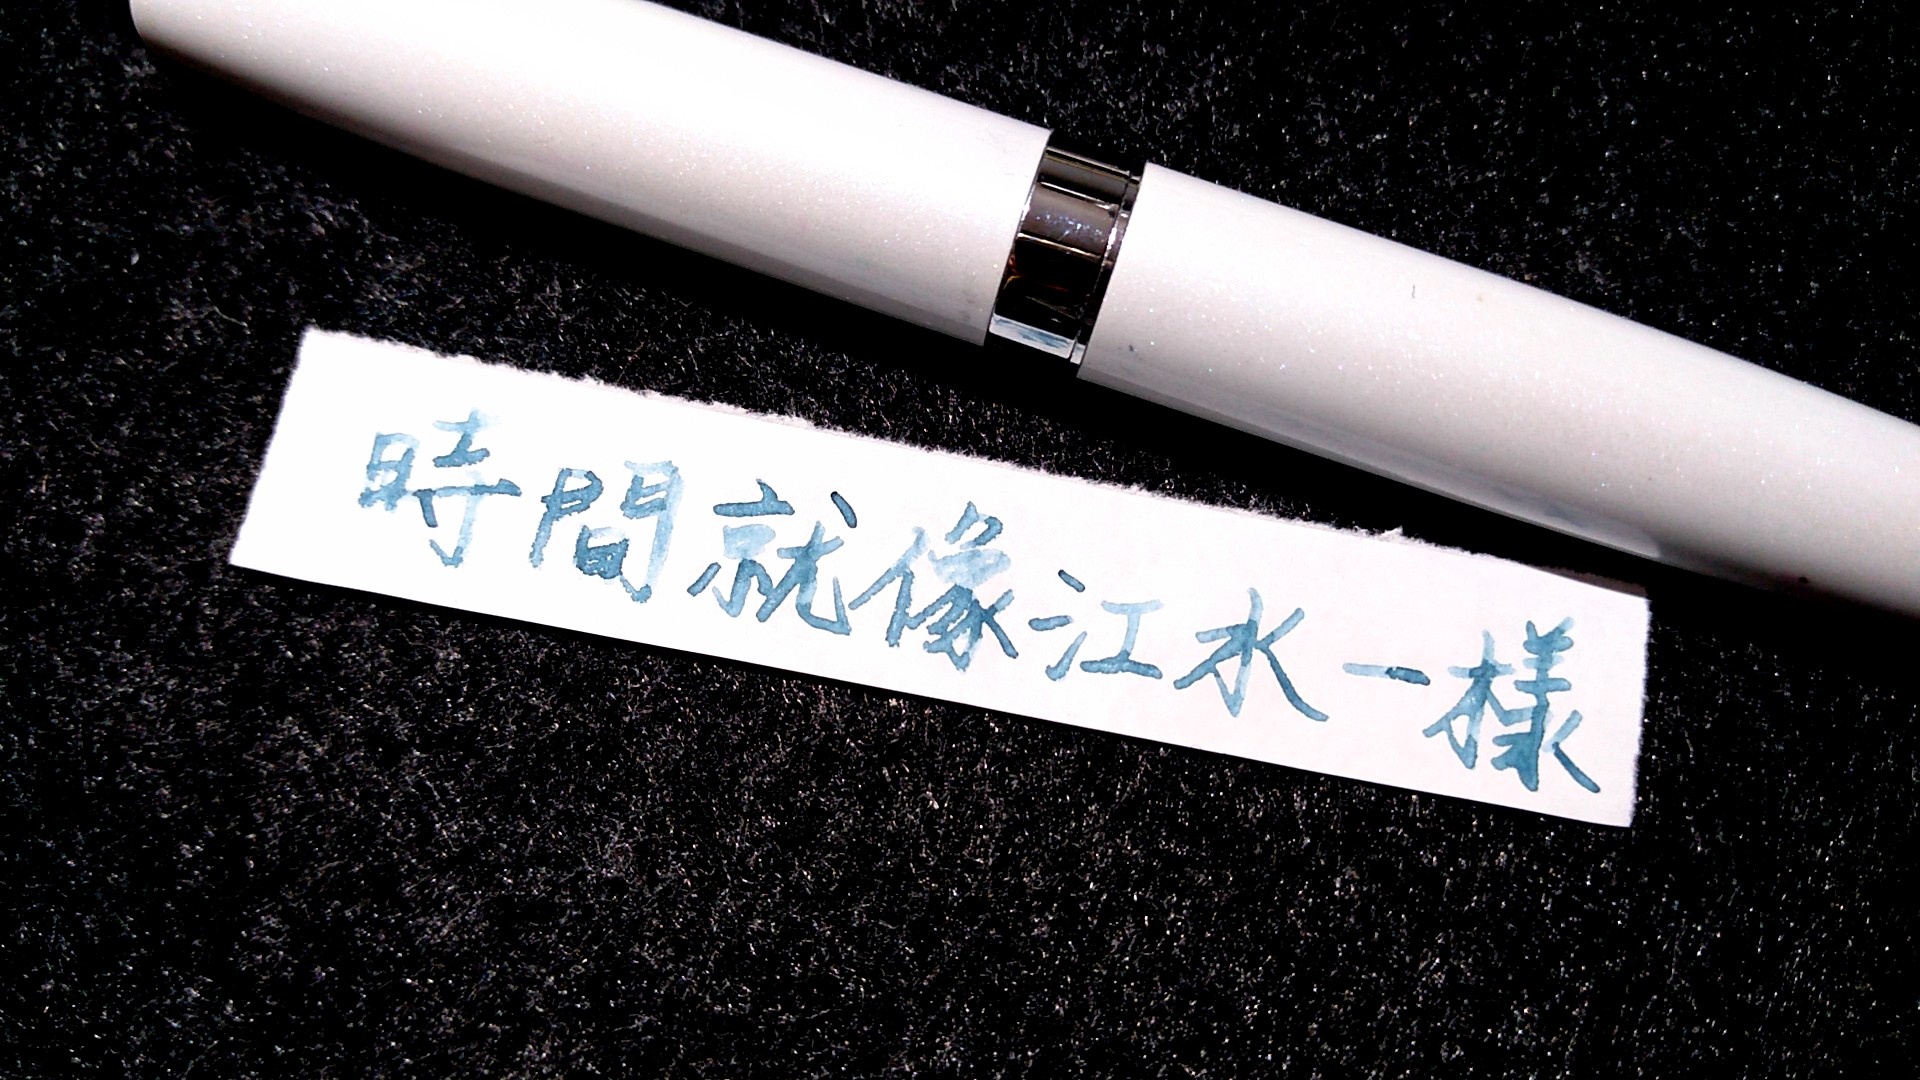 時間就像江水一樣